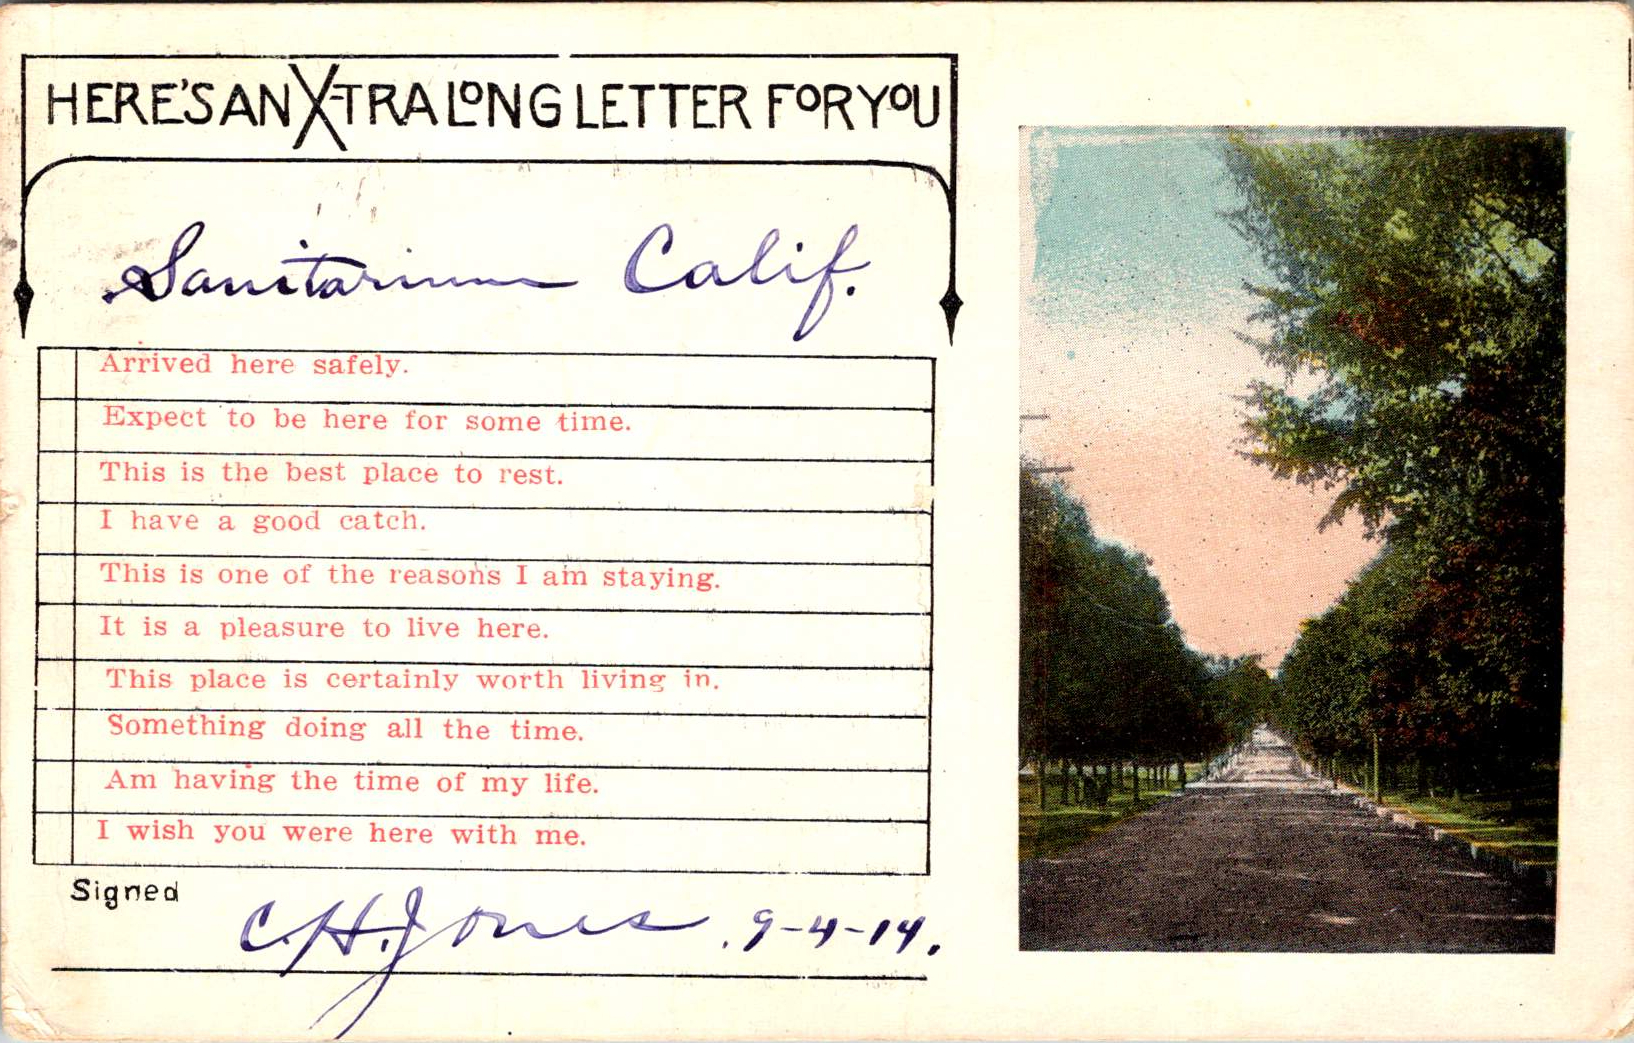 HERE'S AN X-TRA LONG LETTER FOR YOU
Sanitarium Calif.
Arrived here safely.
Expect to be here for some time.
This is the best place to rest.
I have a good catch.
This is one of the reasons I am staying.
It is a pleasure to live here.
This place is certainly worth living in.
Something doing all the time.
Am having the time of my life.
I wish you were here with me.
Signed
C.H. Jones. 9-4-14.